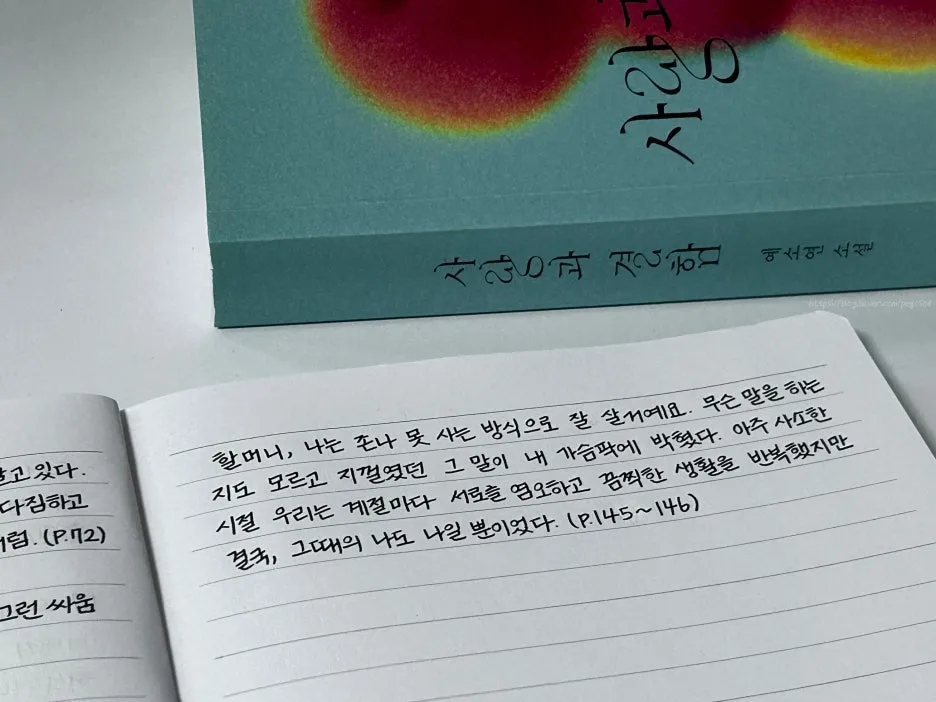 사랑
사랑과 결함 예소연 소설
할머니, 나는 존나 못 사는 방식으로 잘 살거예요. 무슨 말을 하는
지도 모르고 지껄였던 그 말이 내 가슴팍에 박혔다. 아주 사소한
시절 우리는 계절마다 서로를 염오하고 끔찍한 생활을 반복했지만
결국, 그때의 나도 나일 뿐이었다. (P.145~146)
고 있다.
다짐하고
럼. (P.72)
그런 싸움